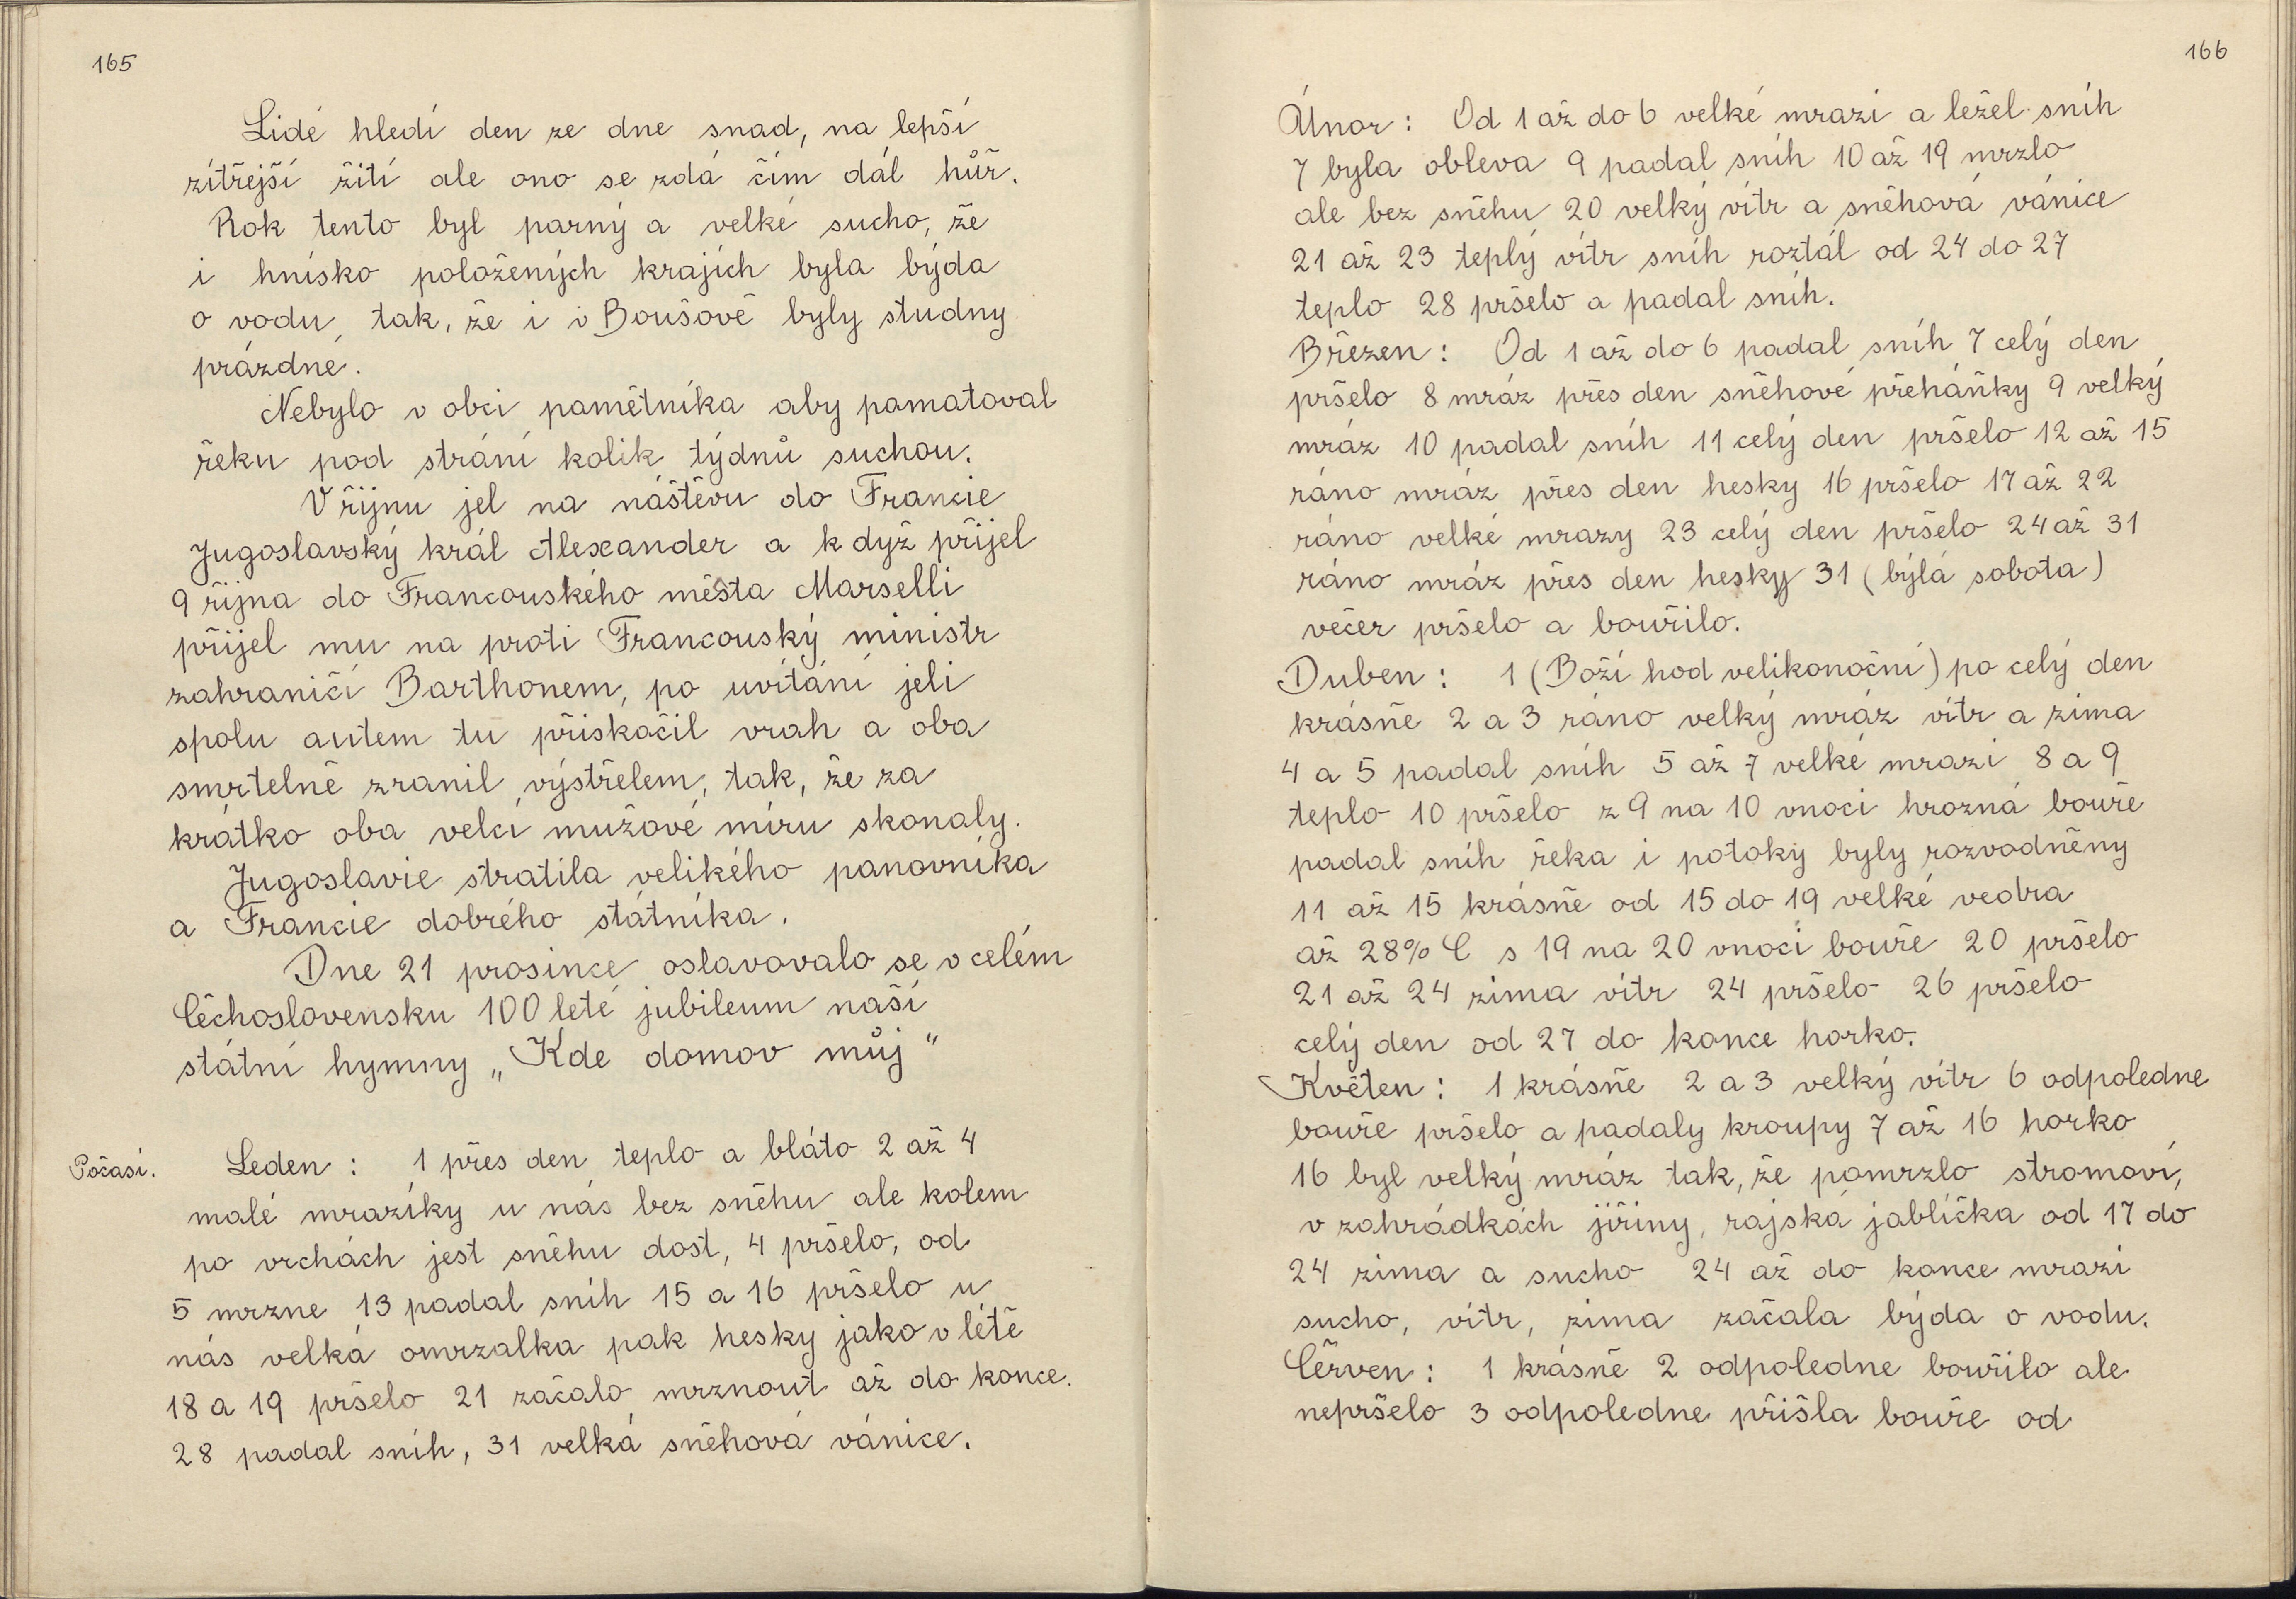 165
Lidé hledí den ze dne snad, na lepší
zítřejší žití ale ono se zdá čím dál hůř.
Rok tento byl parný a velké sucho, že
i hnísko položených krajích byla býda
o vodu, tak, že i v Boušově byly studny
prázdné.
Nebylo v obci pamětníka aby pamatoval
řeku pod strání kolik týdnů suchou.
V říjnu jel na náštěvu do Francie
Jugoslavský král Alexander a k dyž přijel
9 října do Francouského města Marselli
přijel mu na proti Francouský ministr
zahraničí Barthonem, po uvítání jeli
spolu autem tu přiskačil vrah a oba
smrtelně zranil výstřelem, tak, že za
krátko oba velcí mužové míru skonaly.
Jugoslavie stratila velikého panovníka
a Francie dobrého státníka.
Dne 21 prosince oslavovalo se v celém
Čéchoslovensku 100 leté jubileum naší
státní hymny „Kde domov můj"
Počasí.
Leden : 1 přes den teplo a bláto 2 až 4
malé mrazíky u nás bez sněhu ale kolem
po vrchách jest sněhu dost, 4 pršelo, od
5 mrzne 13 padal sníh 15 a 16 pršelo u
nás velká omrzalka pak hesky jako v létě
18 a 19 pršelo 21 začalo mrznout až do konce.
28 padal sníh, 31 velká sněhová vánice.
166
Únor : Od 1 až do 6 velké mrazi a ležel sníh
7 byla obleva 9 padal sníh 10 až 19 mrzlo
ale bez sněhu 20 velký vítr a sněhová vánice
21 až 23 teplý vítr sníh roztál od 24 do 27
teplo 28 pršelo a padal sníh.
Březen : Od 1 až do 6 padal sníh 7 celý den
pršelo 8 mráz přes den sněhové přeháňky 9 velký
mráz 10 padal sníh 11 celý den pršelo 12 až 15
ráno mráz přes den hesky 16 pršelo 17 až 22
ráno velké mrazy 23 celý den pršelo 24 až 31
ráno mráz přes den hesky 31 (býlá sobota)
večer pršelo a bouřilo.
Duben : 1 (Boží hod velikonoční) po celý den
krásně 2 a 3 ráno velký mráz vítr a zima
4 a 5 padal sníh 5 až 7 velké mrazi 8 a 9
teplo 10 pršelo z 9 na 10 vnoci hrozná bouře
padal sníh řeka i potoky byly rozvodněny
11 až 15 krásně od 15 do 19 velké vedra
až 28% C s 19 na 20 vnoci bouře 20 pršelo
21 až 24 zima vítr 24 pršelo 26 pršelo
celý den od 27 do konce horko.
Květen : 1 krásně 2 a 3 velký vítr 6 odpoledne
bouře pršelo a padaly kroupy 7 až 16 horko
16 byl velký mráz tak, že pomrzlo stromoví,
v zahrádkách jiřiny, rajská jablíčka od 17 do
24 zima a sucho 24 až do konce mrazi
sucho, vítr, zima začala býda o vodu.
Čérven : 1 krásně 2 odpoledne bouřilo ale
nepršelo 3 odpoledne přišla bouře od